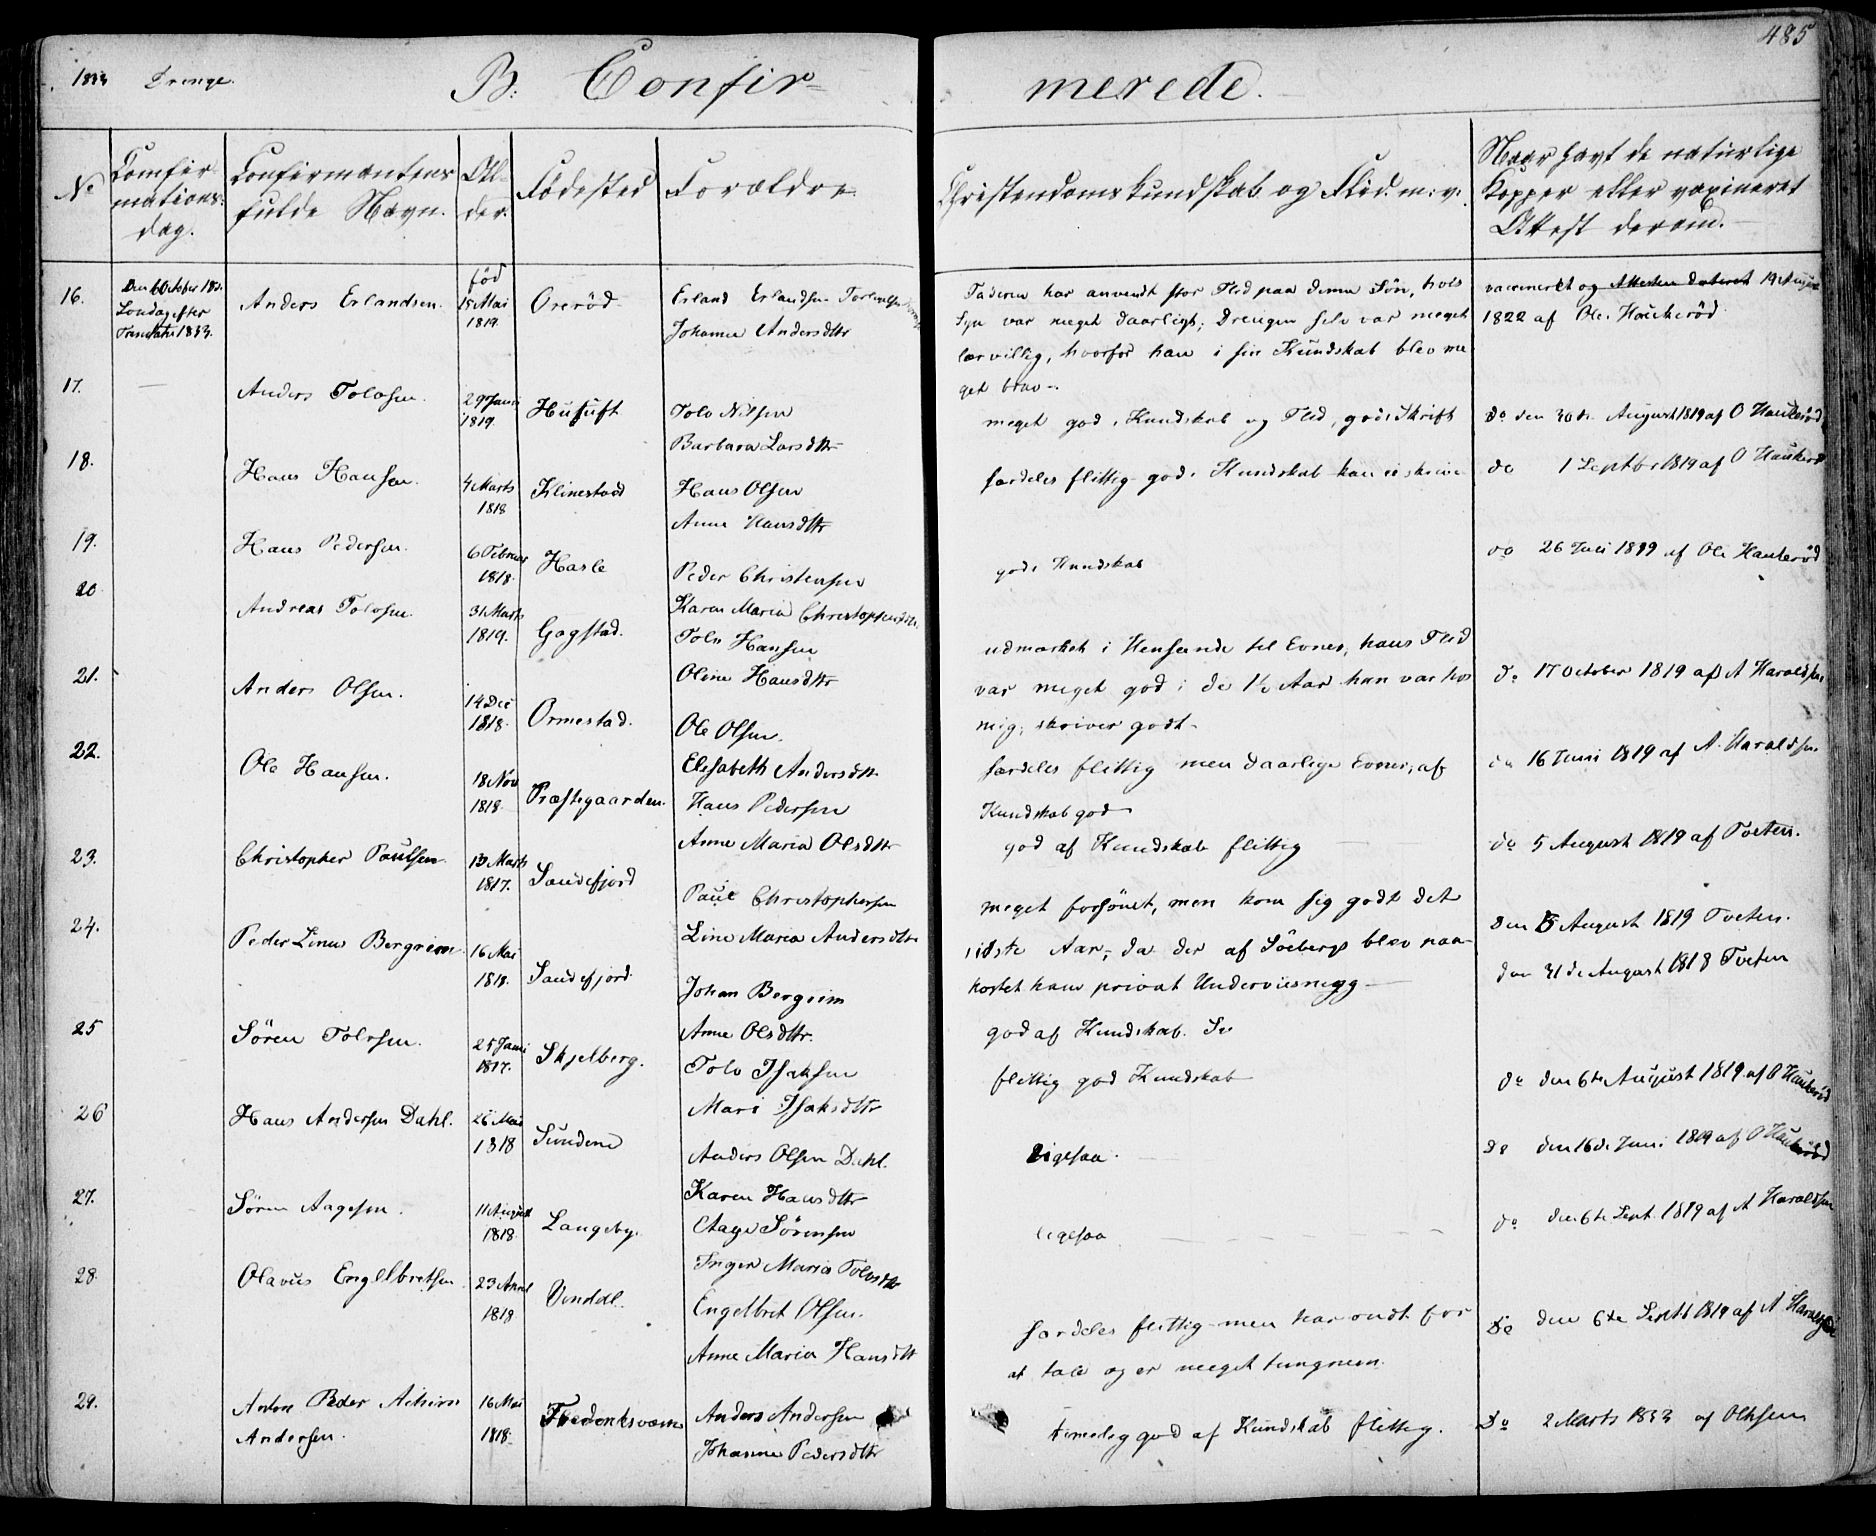 485
1833 Drenge.
B. Confir-
merede.
No
Confir-
mations-
dag.
Confirmantens
fulde Navn.
Al-
der.
Fødested
Forældre
Christendomskundskab og Flid. m: v:
Naar havt de naturlige
Kopper eller vaxineret
Attest derom.
16.
Den 6 October 183
Søndag efter
1833.
Anders Erlandsen.
fød
15 Mai
1819.
Orerød
Erland Erlandsen
Johanne Andersdttr
Faderen har anvendt stor Flid paa denne Søn, hvis
Syn var meget daarligt; Drengen selv var meget
lærvillig, hvorfor han i sin Kundskab blev me
get brav.
vaccineret og Attesten dateret 19 August
1822 af Ole Haukerød
17.
Anders Tolvsen.
29 Juni
1819.
Husuft
Tolv Nilsen
Barbara Larsdttr
meget god Kundskab og Flid, god Skrift
do den 30te August 1819 af O Haukerød
18.
Hans Hansen.
4 Marts
1818
Klinestad
Hans Olsen
Anne Hansdttr
særdeles flittig god Kundskab kan ei skrive
do 1 Septbr 1819 af O Haukerød
19.
Hans Pedersen.
6 Februar
1818.
Hasle
Peder Christensen
Karen Maria Christophersdttr
gode Kundskab
do 26 Juli 1819 af Ole Haukerød
20
Andreas Tolvsen.
31 Marts
1819.
Gogstad.
Tolv Hansen
Oline Hansdttr
udmærket i Henseende til Evner, hans Flid
var meget god i de 1½ Aar han var hos
mig; skriver godt.
do 17 October 1819 af A Haraldsen
21.
Anders Olsen.
14 Dec
1818.
Ormestad.
Ole Olsen.
Elisabeth Andersdttr
særdeles flittig men daarlige Evner; af
Kundskab god
do 16 Juni 1819 af A. Haraldsen
22.
Ole Hansen.
18 Nov
1818.
Præstegaarden.
Hans Pedersen
Anne Maria Olsdttr
god af Kundskab flittig
do 5 August 1819 af Tveten.
23.
Christopher Paulsen
19 Marts
1817.
Sandefjord
Paul Christophersen
Line Maria Andersdttr
meget forsømt, men kom sig godt det
sidste Aar, da der af Söeberg blev paa-
kostet ham privat Underviisning
den 5 August 1819 Tveten.
24.
Peder Linus Bergrim
16 Mai
1818.
Sandefjord
Johan Bergrim
Anne Olsdttr.
god af Kundskab.
den 31de August 1818 Tveten
25
Sören Tolvsen.
25 Juni
1817.
Skjelberg.
Tolv Isaksen
Mari Isaksdttr
flittig god Kundskab
do den 6te August 1819 af O Haukerød
26
Hans Andersen Dahl.
26 Mai
1818
Sundene
Anders Olsen Dahl.
Karen Hansdttr
Ligesaa.
do den 16de Juni 1819 af O Haukerød
27.
Sören Aagesen.
11 August
1818.
Langeby.
Aage Sörensen
Inger Maria Tolvsdttr
ligesaa
do den 6te Sept. 1819 af A Haraldsen
28.
Olavus Engelbretsen.
23 April
1818
Vindal.
Engelbret Olsen.
Anne Maria Hansdttr
særdeles flittig men har ondt for
at tale og er meeget tungnem.
Do den 6te Septb 1819 af A Haraldsen
29.
Anton Peder
Andersen.
16 Mai
1818.
Frederiksværn
Anders Andersen
Johanne Pedersdttr
temelig god af Kundskab flittig.
Do 2 Marts 1833 af